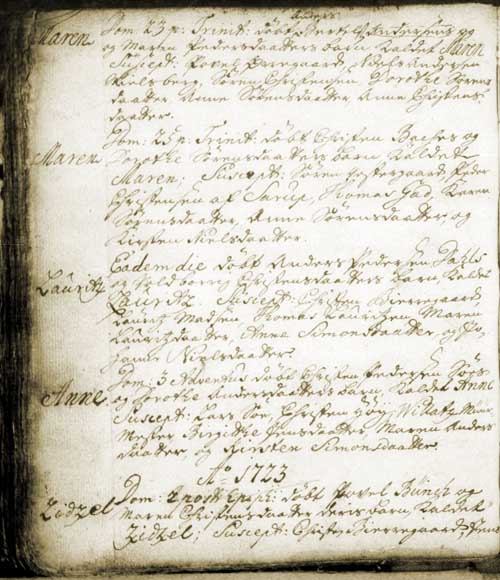 Anders
Maren Dom: 23 p: Trinit: döbt Bertel Andersens og
og Maren Pedersdaatters barn kaldet Maren
Suscept: Povel Ørregaard, Niels Andersen
Sören Christensen, Dorothe Sörens
daatter, Anne Sörensdaatter, Anne Christens
daatter.
Dom: 25 p: Trinit: döbt Christen Baches og
Maren Dorothe Sörensdaatters barn kaldet
Maren; Suscept: Sören Peder
Christensen af Sarup, Thomas Gad, Karen
Sörensdaatter, Anne Sörensdaatter, og
Kirsten Nielsdaatter.
Eadem die döbt Anders Pedersen
Lauritz og Christensdaatters barn, kaldet
Lauritz. Suscept: Christen Bierregaard,
Lauritz Madsen, Thomas Lauritzen, Maren
Lauritzdaatter, Anne Simonsdaatter og Jo,
hanne Nielsdaatter.
Dom: 3 Adventus döbt Christen Pedersen
Anne og Dorothe Andersdaatters barn, kaldet Anne
Suscept: Lars Christen Höy,
Mester Birgitthe Jensdaatter, Maren Anders
daatter, og Kirsten Simonsdaatter.
Aō 1723
Zidzel Dom: 2 post Epiph: döbt Povel Bünch og
Maren Christensdaatter deris barn kaldet
Zidzel; Suscept: Christen Bierregaard,